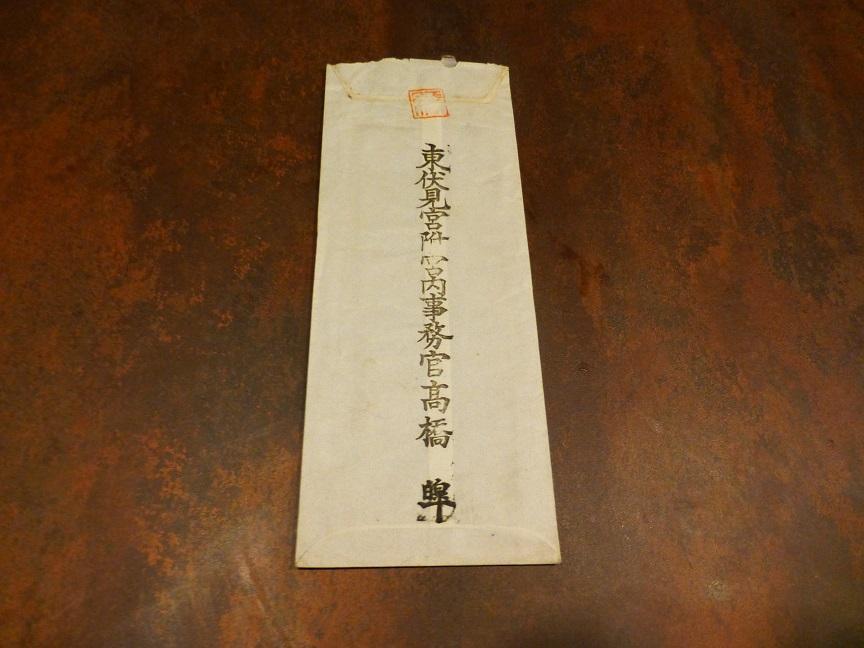 東伏見宮附宮内事務官高橋皥